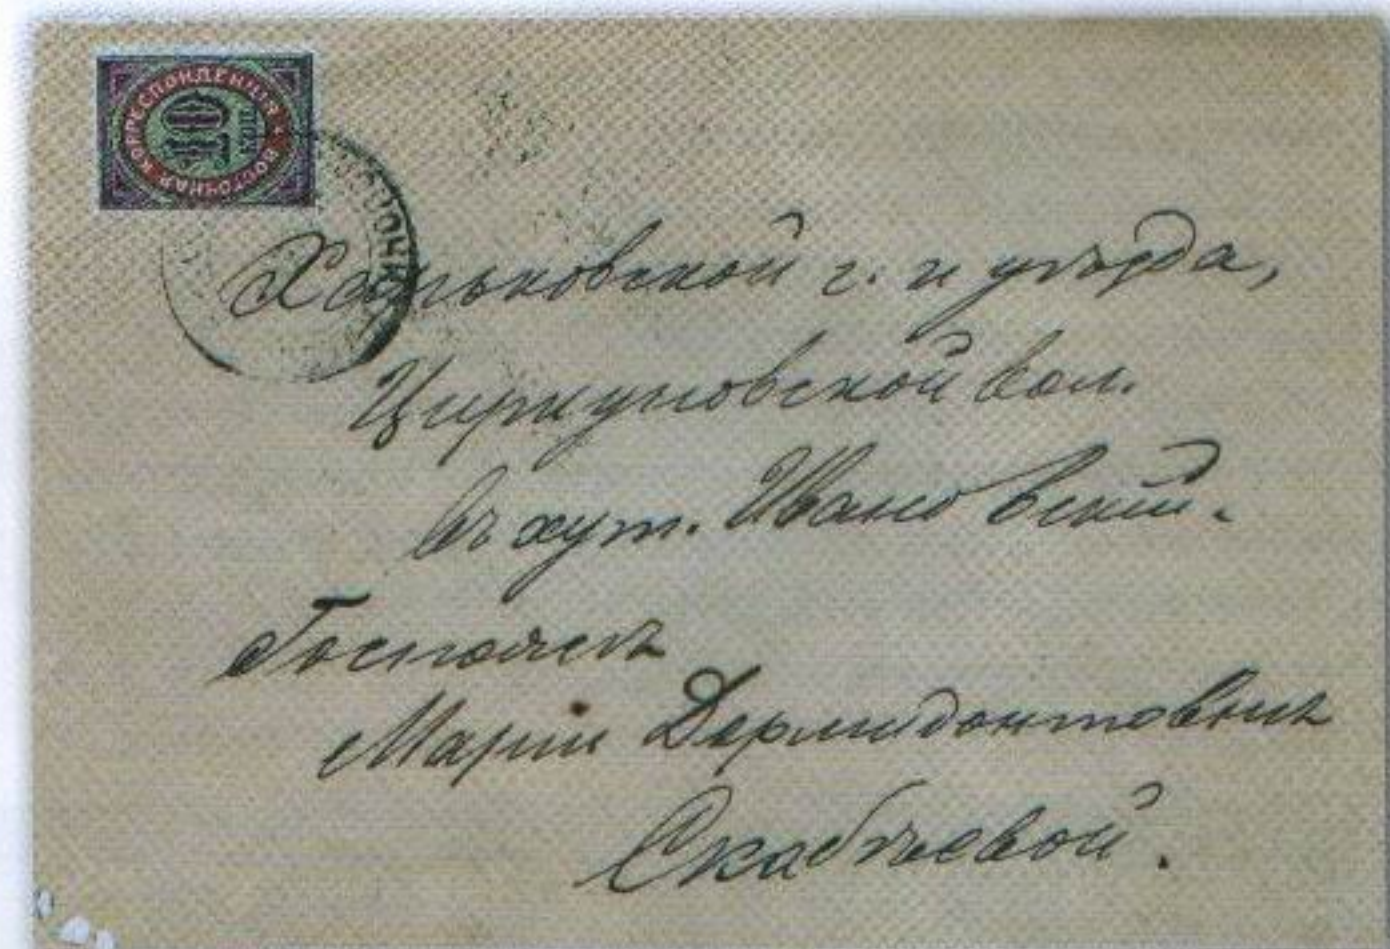 ВОСТОЧНАЯ КОРРЕСПОНДЕНЦІЯ
10
КОП.
ТОЧН
Харьковской г. и уѣзда,
Циркуновской вол.
въ хут. Ивановскій.
Госпожѣ
Маріи Дермидонтовнѣ
Скабѣевой.